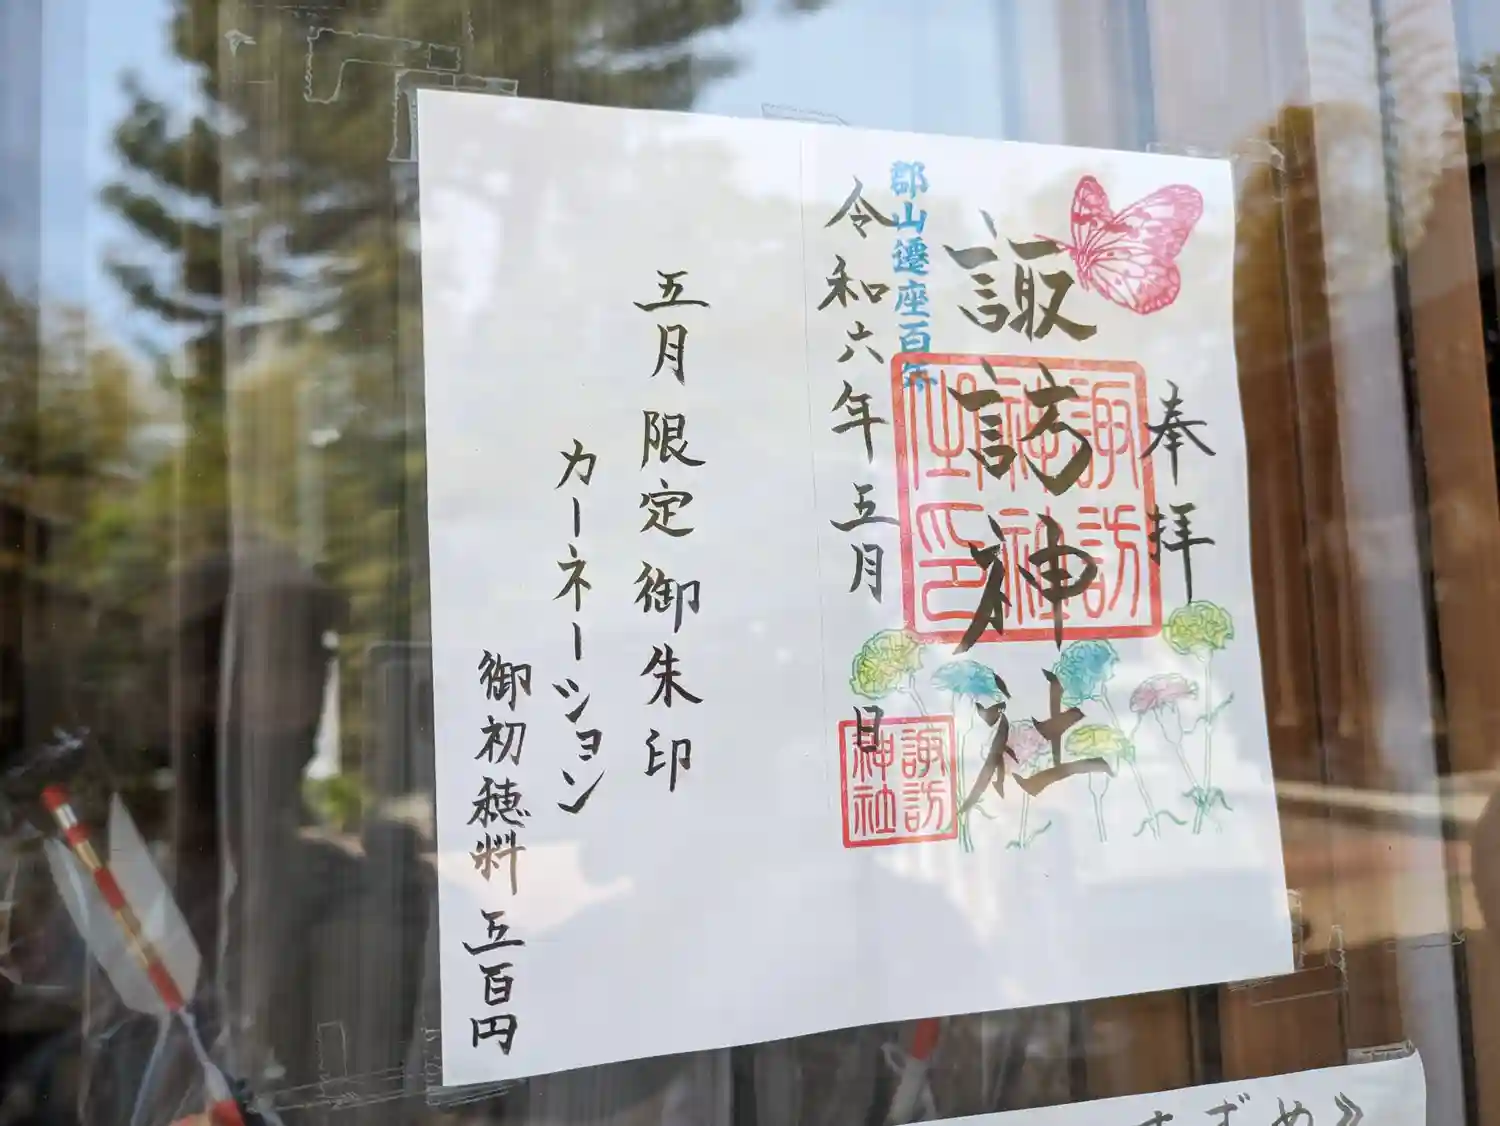 奉拝
諏訪神社
諏訪
神社
之印
郡山遷座百年
令和六年五月 日
諏訪
神社
五月限定御朱印
カーネーション
御初穂料 五百円
すずめ》